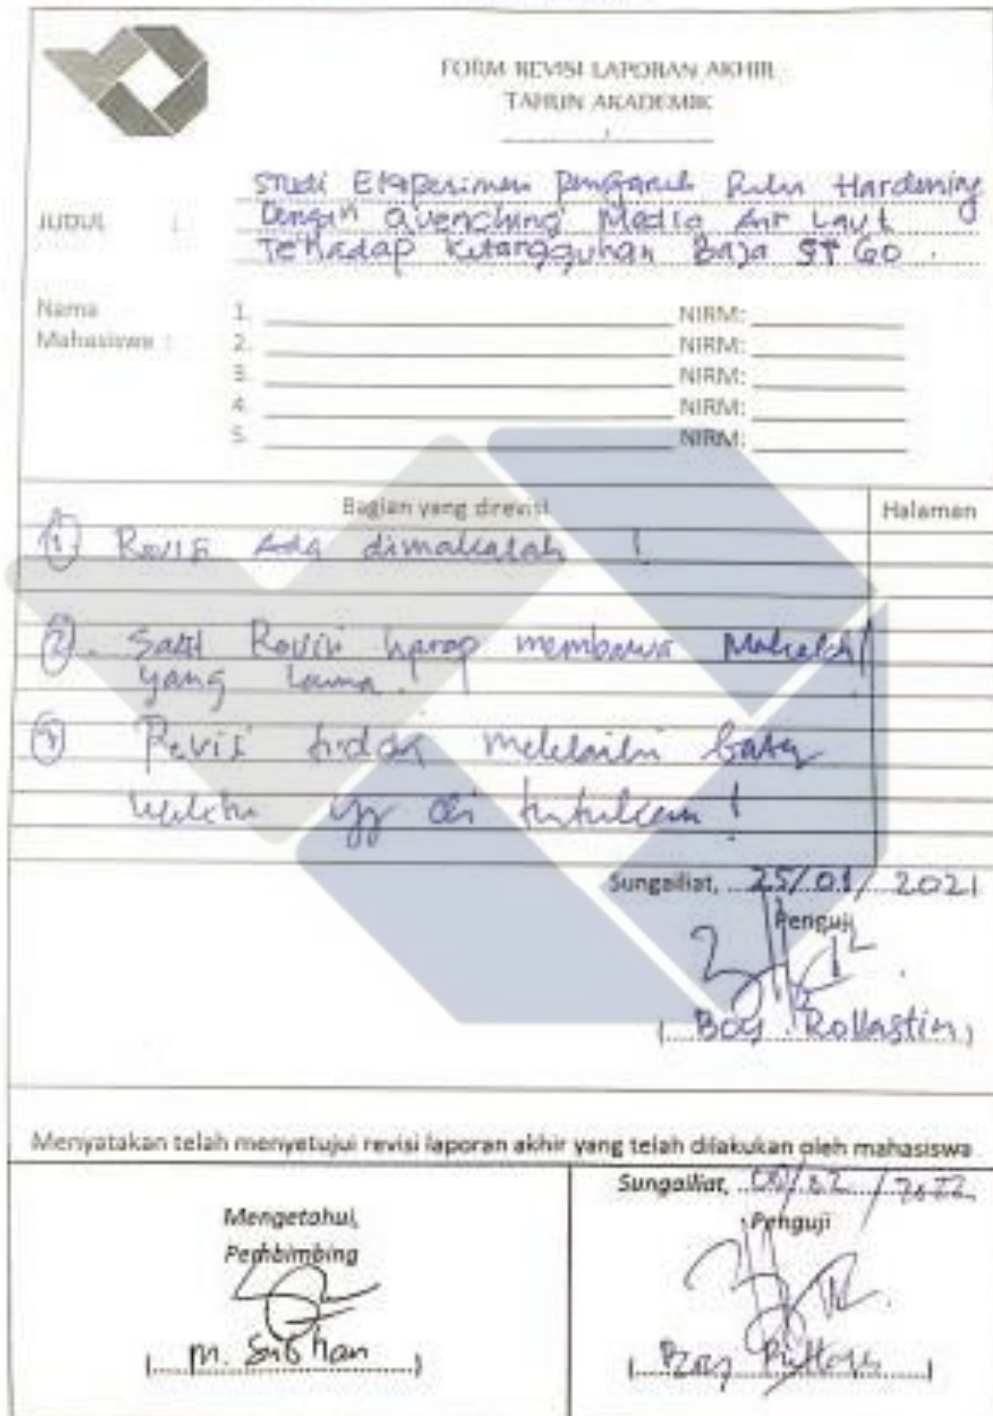 FORM REVISI LAPORAN AKHIR
TAHUN AKADEMIK
/
JUDUL :
Studi Eksperimen Pengaruh Hardening
Dengan Quenching Media Air Laut
Terhadap Ketangguhan Baja ST 60 .
Nama
Mahasiswa :
1. NIRM:
2. NIRM:
3. NIRM:
4. NIRM:
5. NIRM:
Bagian yang direvisi Halaman
1 Revisi Ada dimakalah !
2. Saat Revisi harap membawa Makalah
yang Lama !
3 Revisi tidak melebihi batas
waktu yg di tentukan !
Sungailiat, 25/01/2021
Penguji
( Boy Rollastin )
Menyatakan telah menyetujui revisi laporan akhir yang telah dilakukan oleh mahasiswa
Mengetahui,
Pembimbing
( M. Subhan )
Sungailiat,
Penguji
( Boy )